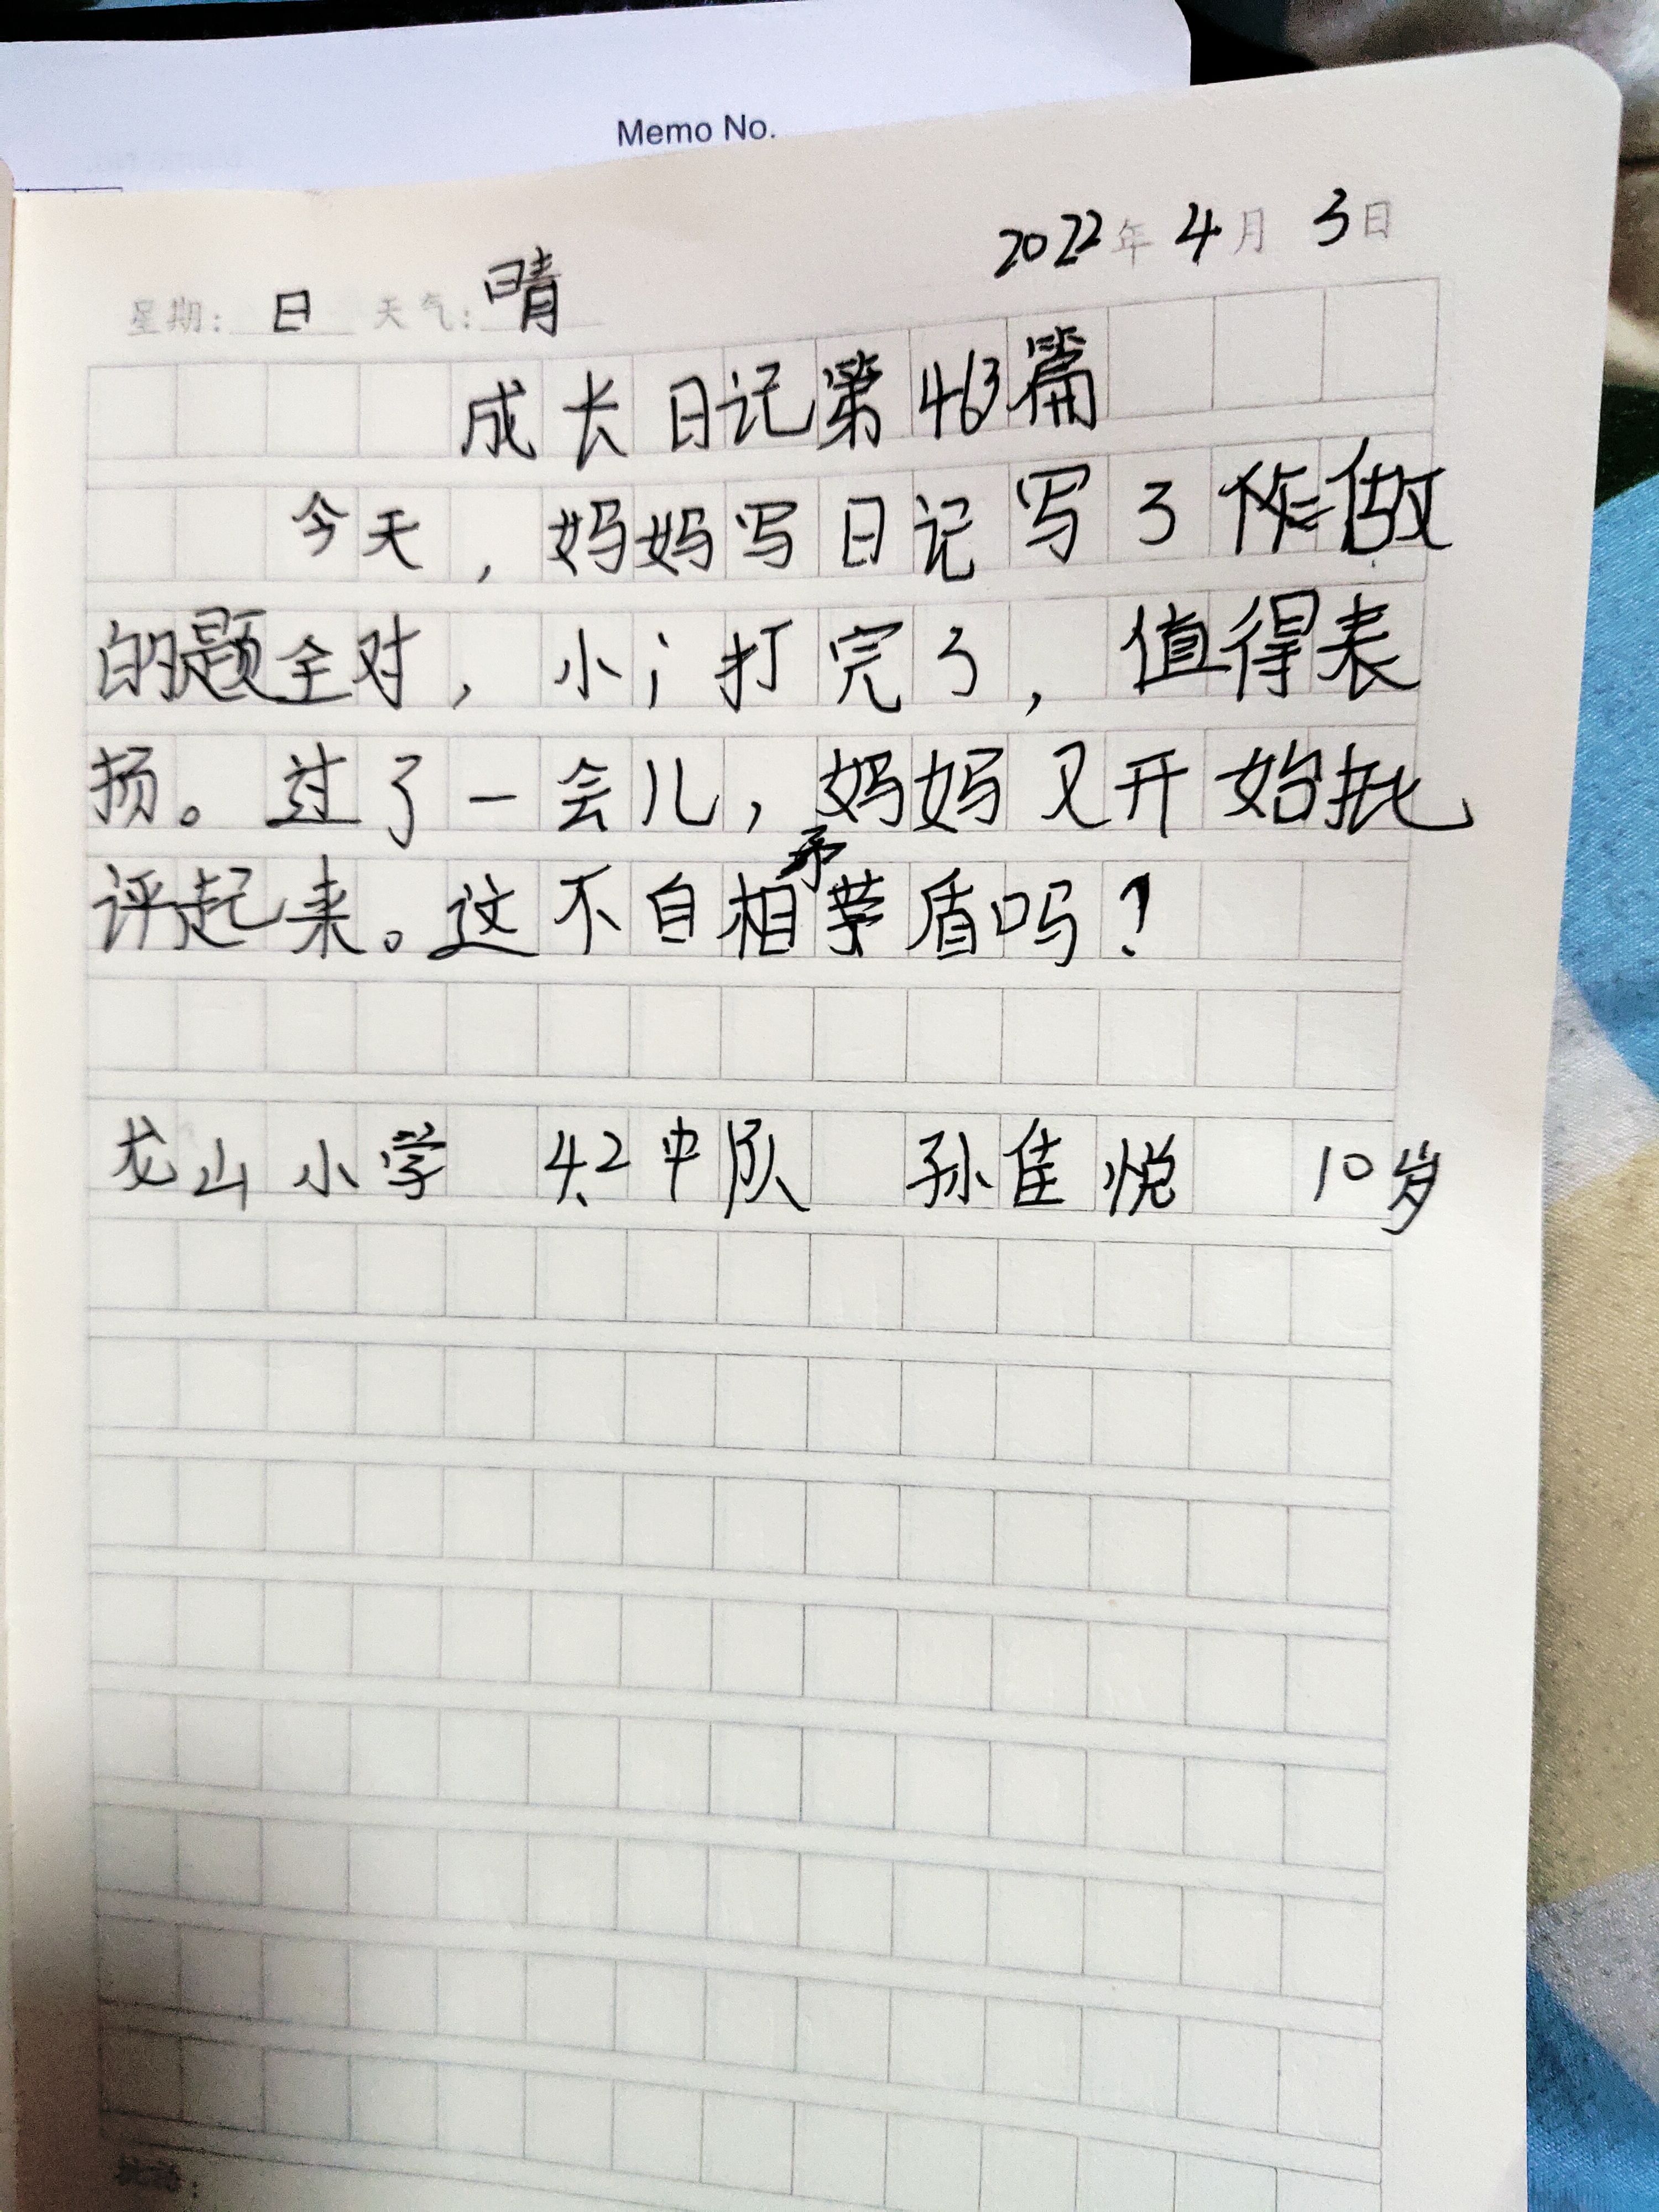 Memo No.
2022年4月3日
星期：日 天气：晴
成长日记第463篇
今天，妈妈写日记写了做
的题全对，小j打完了，值得表
扬。过了一会儿，妈妈又开始批
评起来。这不自相矛盾吗？
龙山小学 42中队 孙佳悦 10岁